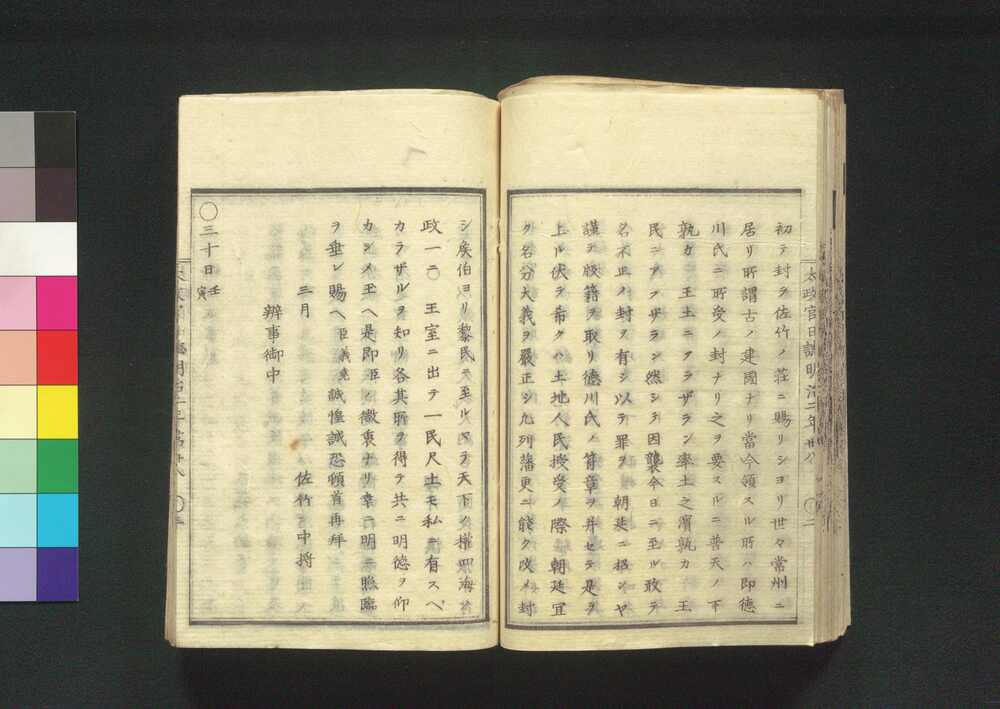 初テ封ヲ佐竹ノ荘ニ賜リシヨリ世々常州ニ
居リ所謂古ノ建國ナリ當今領スル所ハ即德
川氏ニ所受ノ封ナリ之ヲ要スルニ普天ノ下
孰カ 王土ニアラザラン率土之濱孰カ 王
民ニアラザラン然シテ因襲今日ニ至ル敢テ
名不正ノ封ヲ有シ以テ罪ヲ 朝廷ニ招ンヤ
謹テ版籍ヲ取リ德川氏ノ符章ヲ并セテ是ヲ
上ル伏テ希クハ土地人民授受ノ際 朝廷宜
ク名分大義ヲ嚴正シ九列藩更ニ能ク改メ封
太政官日誌明治二年 廿八 〇二
シ侯伯ヨリ黎民ニ至ルマテ天下ノ權四海
政一ニ 王室ニ出テ一民尺土モ私ニ有スベ
カラザルヲ知リ各其所ヲ得テ共ニ明德ヲ仰
カシメ玉ヘ是即臣ノ微衷ナリ幸ニ明ニ照臨
ヲ垂レ賜ヘ臣義堯誠惶誠恐頓首再拜
三月 佐竹中將
辨事御中
〇三十日壬寅